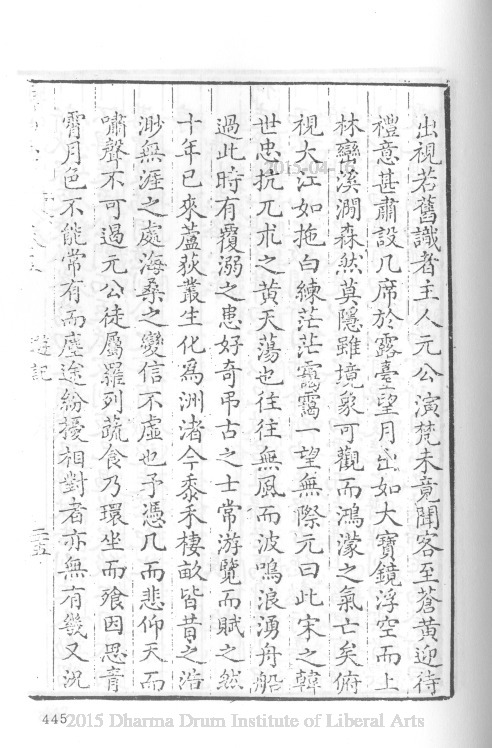 出視若舊識者主人元公演梵未竟聞客至蒼黃迎待
禮意甚肅設几席於露臺望月出如大寶鏡浮空而上
林巒溪澗森然莫隱雖境象可觀而鴻濛之氣亡矣俯
視大江如拖白練茫茫靄靄一望無際元曰此宋之韓
世忠抗兀朮之黃天蕩也往往無風而波鳴浪湧舟船
過此時有覆溺之患好奇弔古之士常游覽而賦之然
十年已來蘆荻叢生化為洲渚今黍禾棲畝皆昔之浩
渺無涯之處海桑之變信不虛也予憑几而悲仰天而
嘯聲不可遏元公徒屬羅列蔬食乃環坐而飱因思青
霄月色不能常有而塵途紛擾相對者亦無有幾又況
遊記
二五
2015-04-
445
2015 Dharma Drum Institute of Liberal Arts